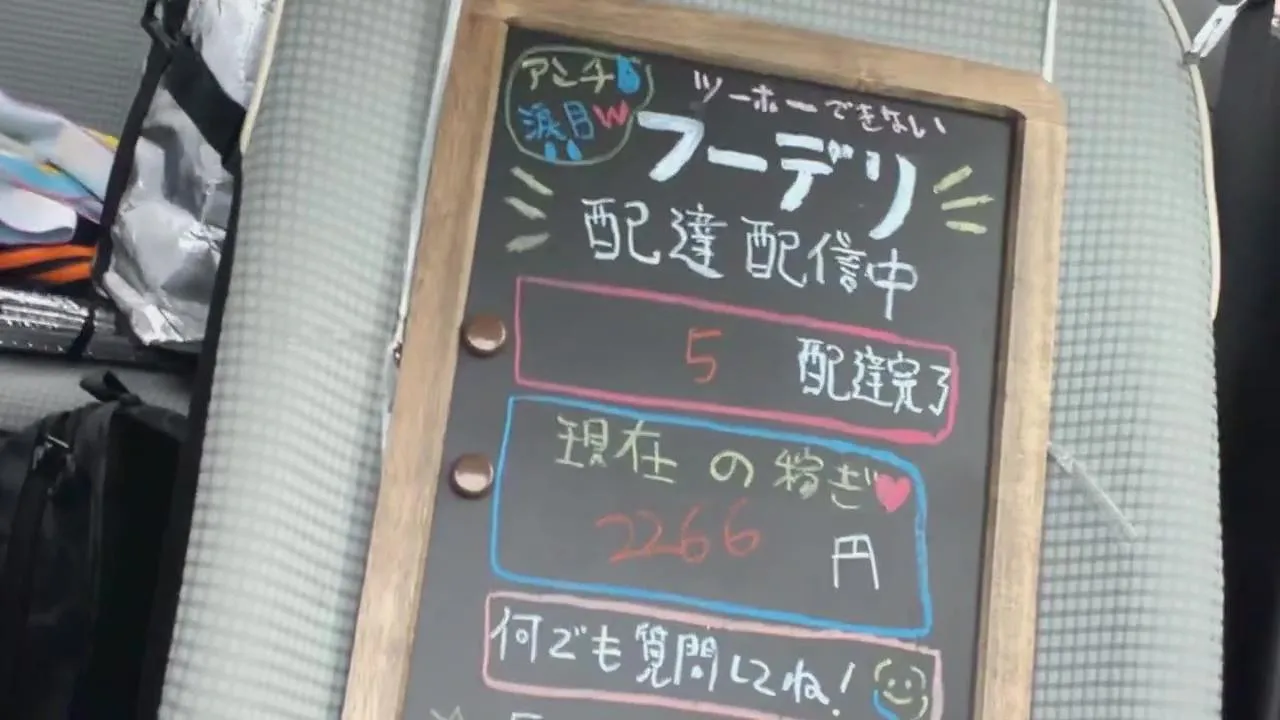 アンチ
涙目W
ツーホーできない
フーデリ
配達配信中
5 配達完了
現在の稼ぎ
2266円
何でも質問してね!